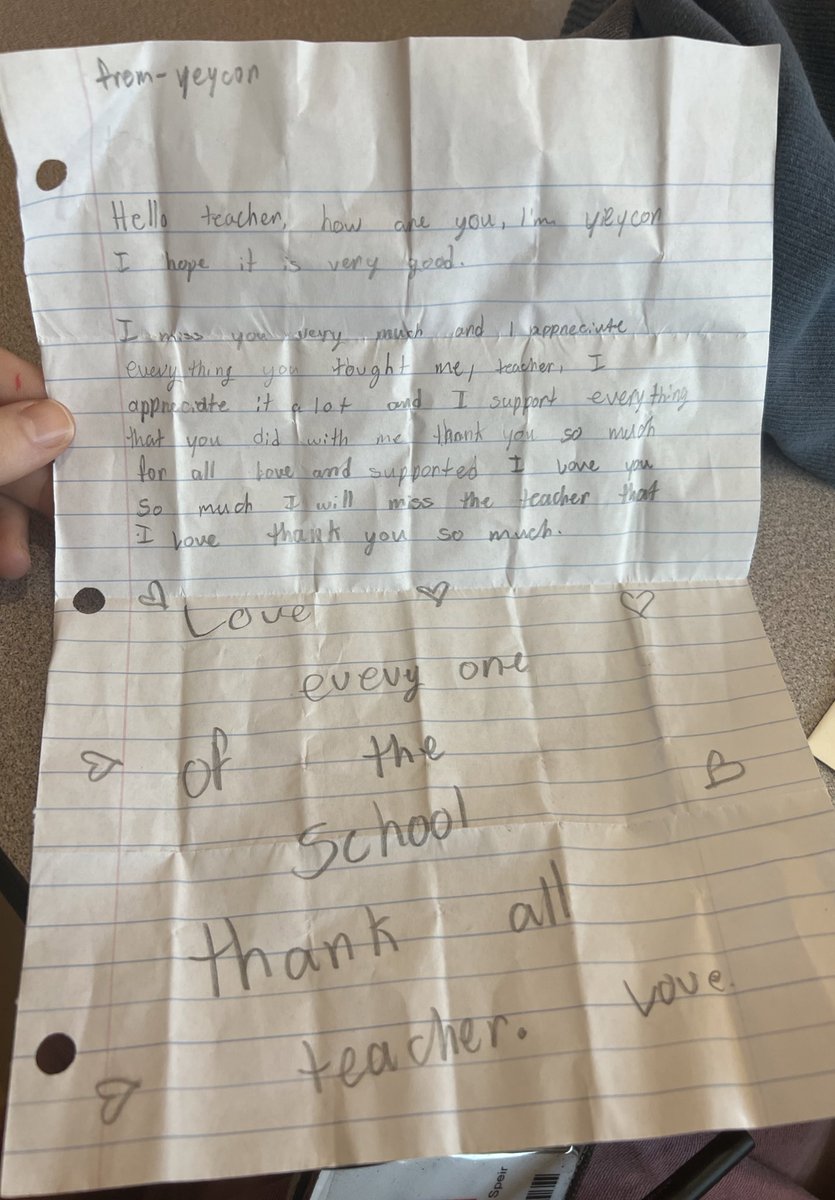 from-yeycon
Hello teacher, how are you, I'm yeycon
I hope it is very good.
I miss you very much and I appreciate
everything you tought me, teacher, I
appreciate it a lot and I support everything
that you did with me thank you so much
for all love and supported I love you
so much I will miss the teacher that
I love thank you so much.
Love
evevy one
of the
School
thank all
teacher. Love.
Speir